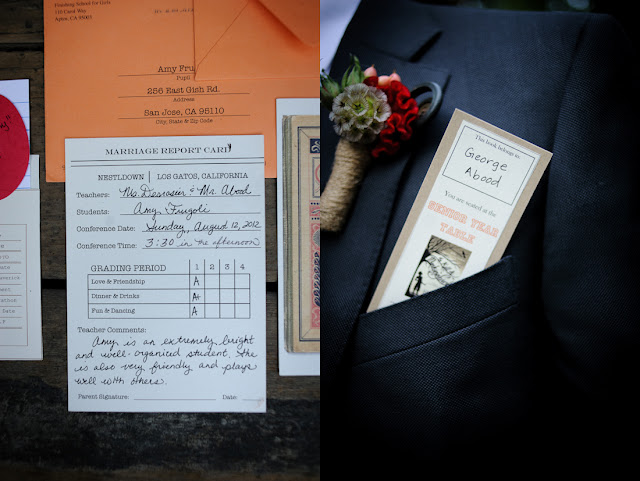 Finishing School for Girls
110 Carol Way
Aptos, CA 95001
Amy Fru
Pupil
256 East Gish Rd.
Address
San Jose, CA 95110
City, State & Zip Code
MARRIAGE REPORT CARD
NESTLDOWN | LOS GATOS, CALIFORNIA
Teachers: Ms. Desrosier & Mr. Abood
Students: Amy Frugoli
Conference Date: Sunday, August 12, 2012
Conference Time: 3:30 in the afternoon
GRADING PERIOD 1 2 3 4
Love & Friendship A
Dinner & Drinks A+
Fun & Dancing A
Teacher Comments:
Amy is an extremely bright
and well-organized student. She
is also very friendly and plays
well with others.
Parent Signature: Date:
Date
This book belongs to:
George
Abood
You are seated at the
SENIOR YEAR
TABLE